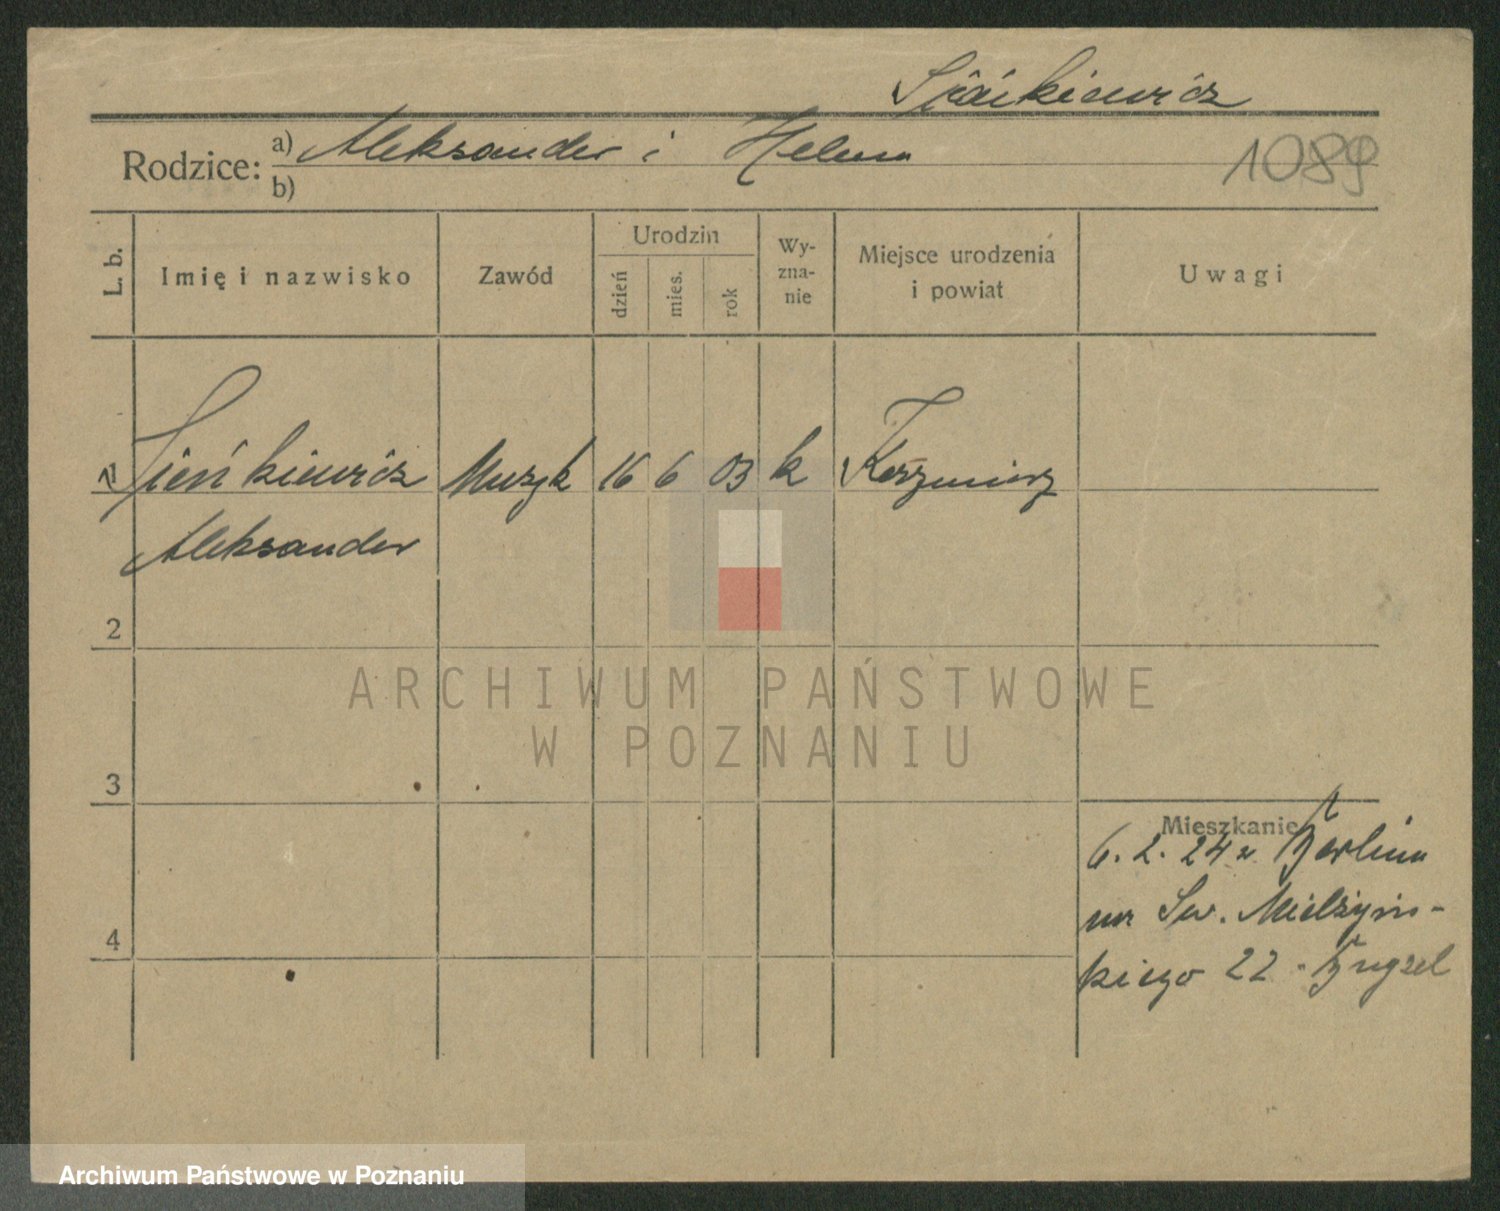 Sieńkiewicz
Rodzice: a) Aleksander i Helena
1089
b)
L. b.
Imię i nazwisko
Zawód
Urodzin
dzień
mies.
rok
Wy-
zna-
nie
Miejsce urodzenia
i powiat
Uwagi
1 Sieńkiewicz Muzyk 16 6 03 k
Aleksander
2
3
4
Mieszkanie
6. 2. 24 z Berlina
na Sew. Mielżyńs-
kiego 22 -
ARCHIWUM PAŃSTWOWE
W POZNANIU
Archiwum Państwowe w Poznaniu